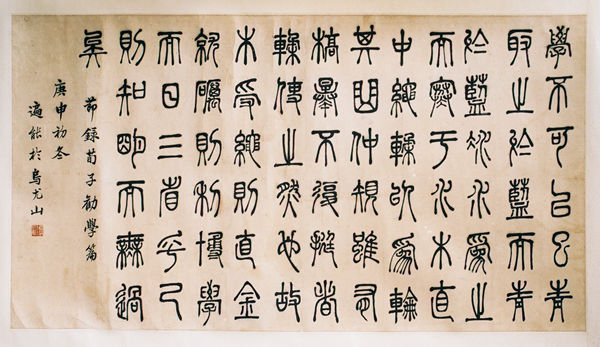 學不可㠯已青
取之於藍而青
於藍冰水爲之
而寒于水木直
中繩輮㠯爲輪
其曲仲規雖有
槁暴不復挺者
輮使之然也故
木受繩則直金
就礪則利博學
而日三省乎己
則知明而無過
矣
節錄荀子勸學篇
庚申初冬
遍能於烏尤山